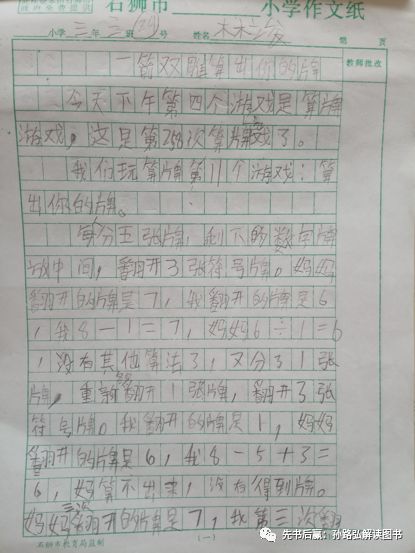 石狮市 小学作文纸
小学 三年 三班 (29)号 姓名 第 页
教师批改
一箭双雕算出你的牌
今天下午第四个游戏是算牌
游戏，这是第258次算牌戏了。
我们玩算牌第11个游戏：算
出你的牌。
每分五张牌，剩下的数字牌
放中间，翻开3张符号牌。妈妈
翻开的牌是7，我翻开的牌是6
，我8－1＝7，妈妈6÷1＝6
，没有其他算法了，又分了1张
牌，重新翻开1张牌，翻开3张
符号牌。我翻开的牌是1，妈妈
翻开的牌是6，我8－5＋3＝
6，妈算不出来，没有得到牌。
妈妈三次翻开的牌是7，我第三次翻
石狮市教育局监制 (一)
先书后赢：孙路弘解读图书